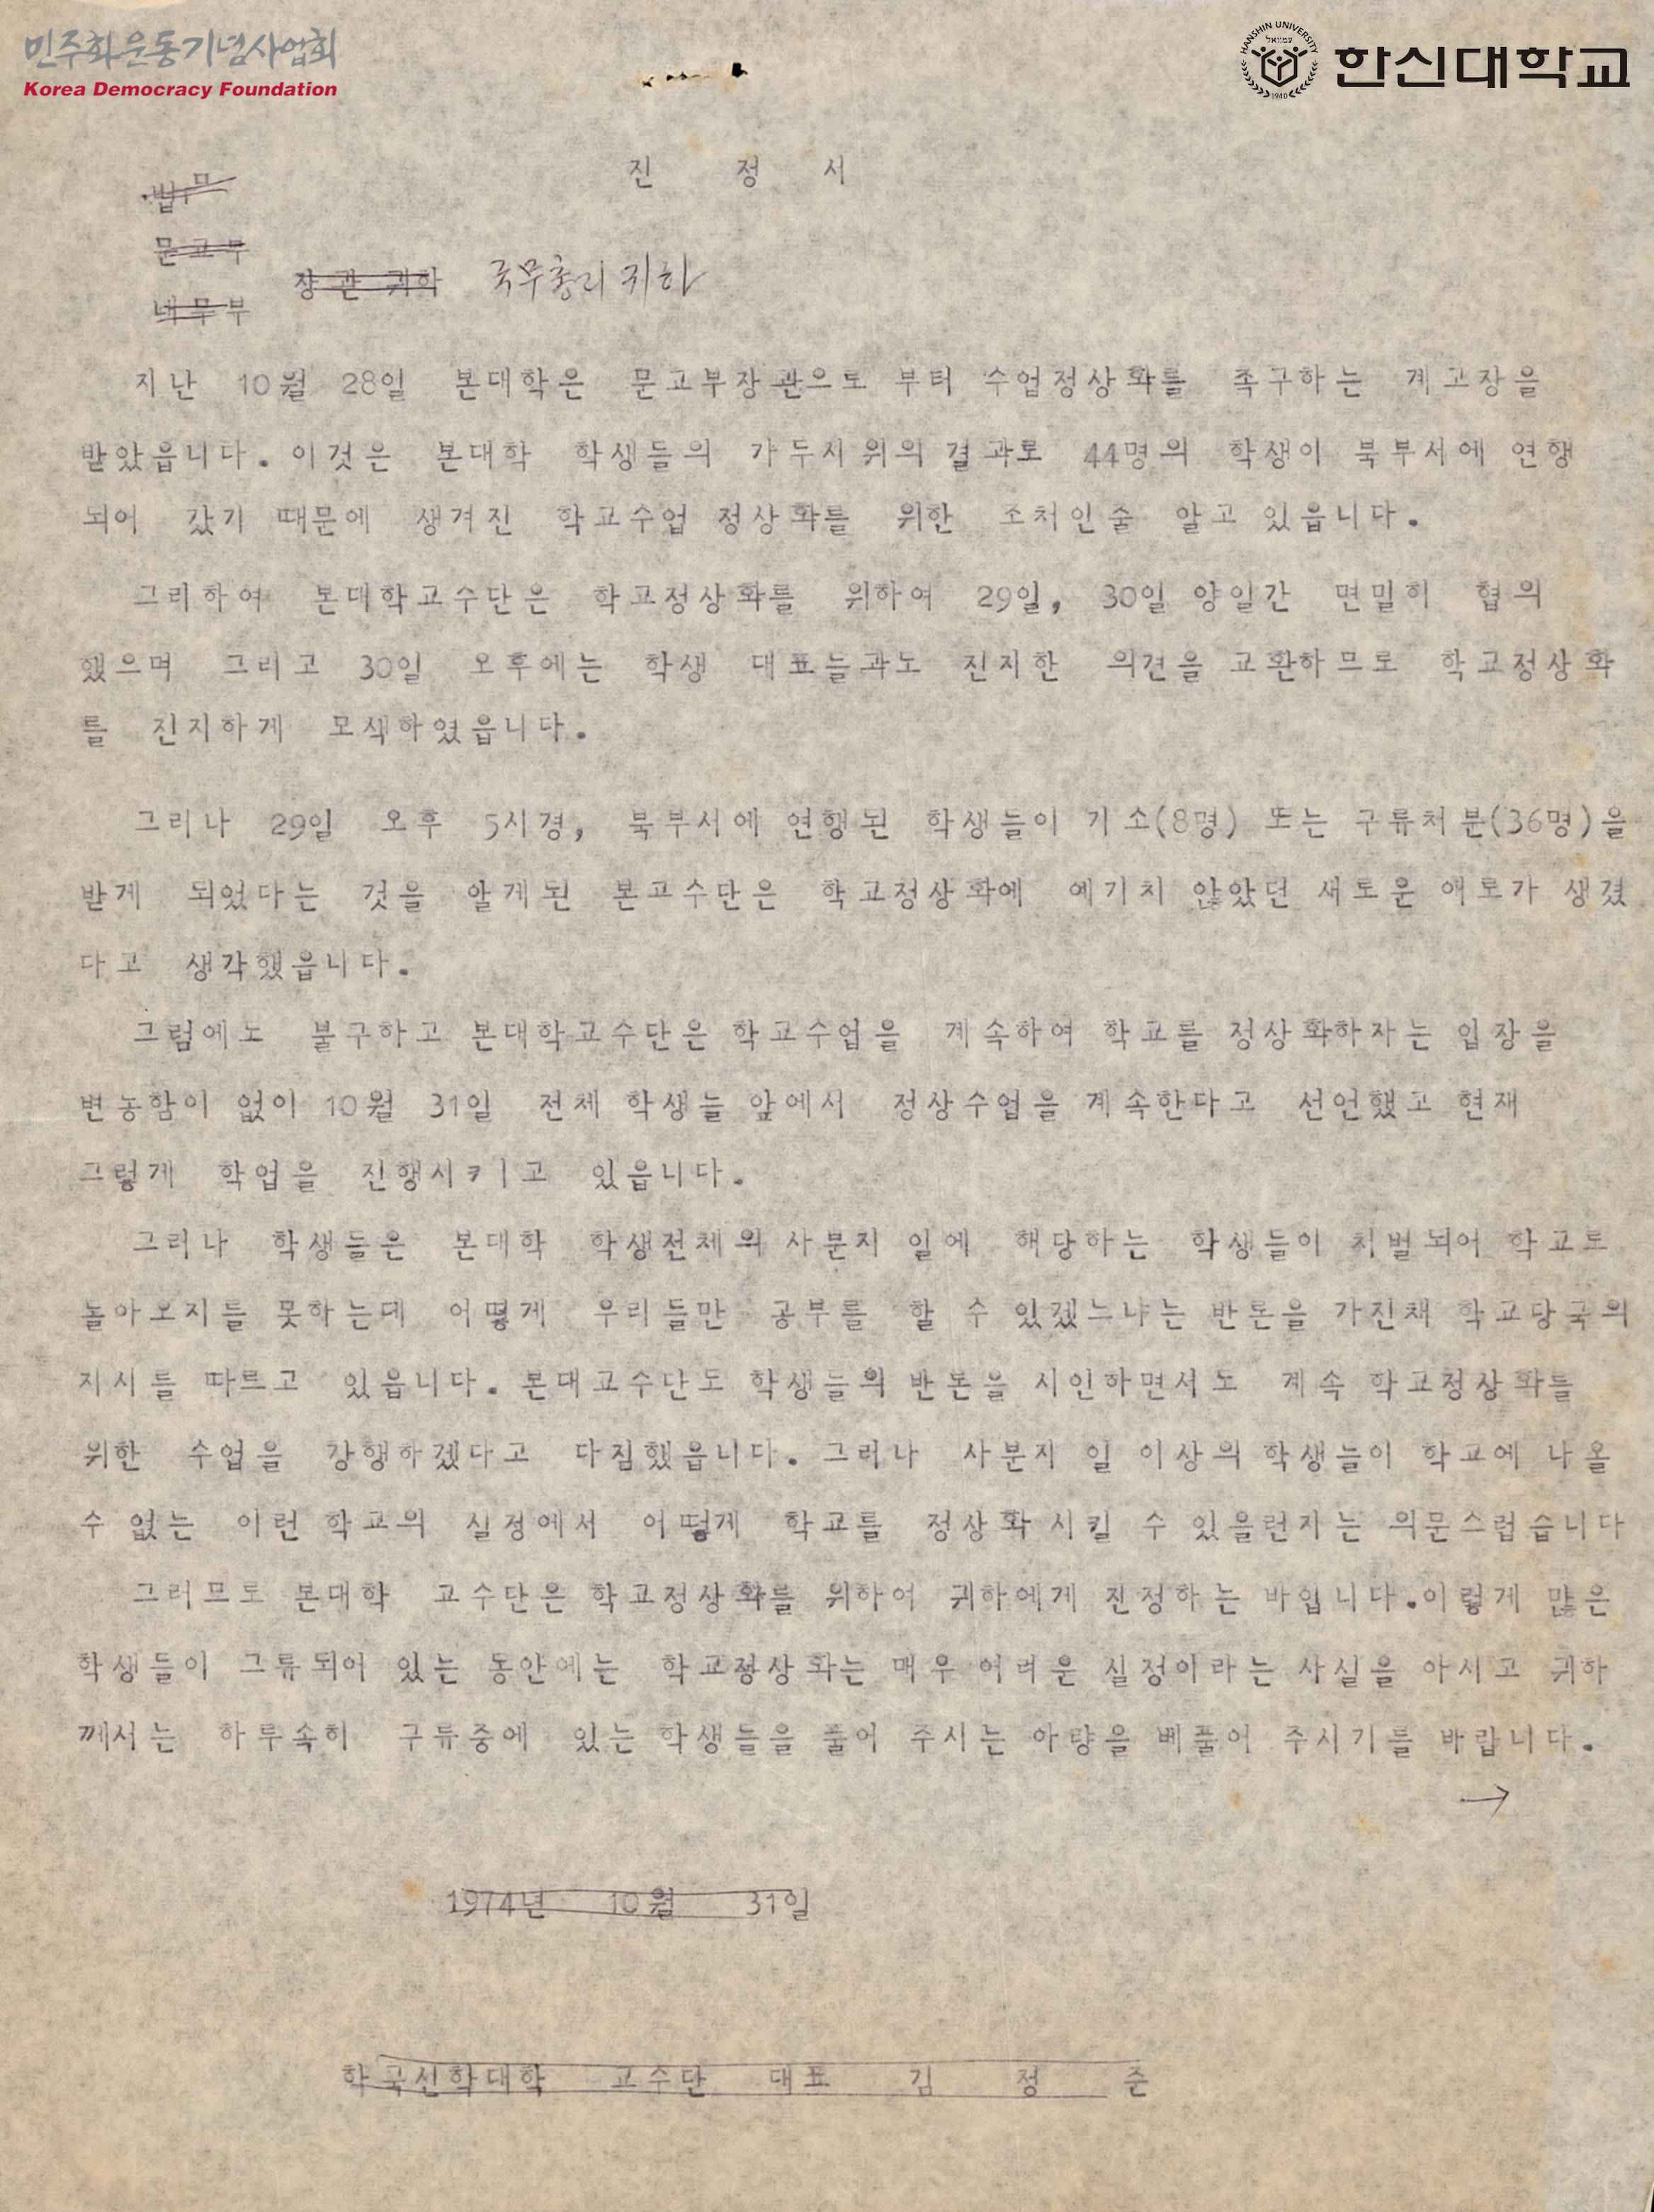 민주화운동기념사업회
Korea Democracy Foundation
HANSHIN UNIVERSITY
1940
한신대학교
진 정 서
법무
문교부
내무부
장관 귀하 국무총리 귀하
지난 10월 28일 본대학은 문교부장관으로 부터 수업정상화를 촉구하는 계고장을
받았읍니다. 이것은 본대학 학생들의 가두시위의 결과로 44명의 학생이 북부서에 연행
되어 갔기 때문에 생겨진 학교수업 정상화를 위한 조처인줄 알고 있읍니다.
그리하여 본대학교수단은 학교정상화를 위하여 29일, 30일 양일간 면밀히 협의
했으며 그리고 30일 오후에는 학생 대표들과도 진지한 의견을 교환하므로 학교정상화
를 진지하게 모색하였읍니다.
그러나 29일 오후 5시경, 북부서에 연행된 학생들이 기소(8명) 또는 구류처분(36명)을
받게 되었다는 것을 알게된 본교수단은 학교정상화에 예기치 않았던 새로운 애로가 생겼
다고 생각했읍니다.
그럼에도 불구하고 본대학교수단은 학교수업을 계속하여 학교를 정상화하자는 입장을
변동함이 없이 10월 31일 전체 학생들 앞에서 정상수업을 계속한다고 선언했고 현재
그렇게 학업을 진행시키고 있읍니다.
그러나 학생들은 본대학 학생전체의 사분지 일에 해당하는 학생들이 처벌되어 학교로
돌아오지를 못하는데 어떻게 우리들만 공부를 할 수 있겠느냐는 반론을 가진채 학교당국의
지시를 따르고 있읍니다. 본대교수단도 학생들의 반론을 시인하면서도 계속 학교정상화를
위한 수업을 강행하겠다고 다짐했읍니다. 그러나 사분지 일 이상의 학생들이 학교에 나올
수 없는 이런 학교의 실정에서 어떻게 학교를 정상화 시킬 수 있을런지는 의문스럽습니다
그러므로 본대학 교수단은 학교정상화를 위하여 귀하에게 진정하는 바입니다.이렇게 많은
학생들이 그류되어 있는 동안에는 학교정상화는 매우 어려운 실정이라는 사실을 아시고 귀하
께서는 하루속히 구류중에 있는 학생들을 풀어 주시는 아량을 베풀어 주시기를 바랍니다.
→
1974년 10월 31일
한국신학대학 교수단 대표 김 정 준